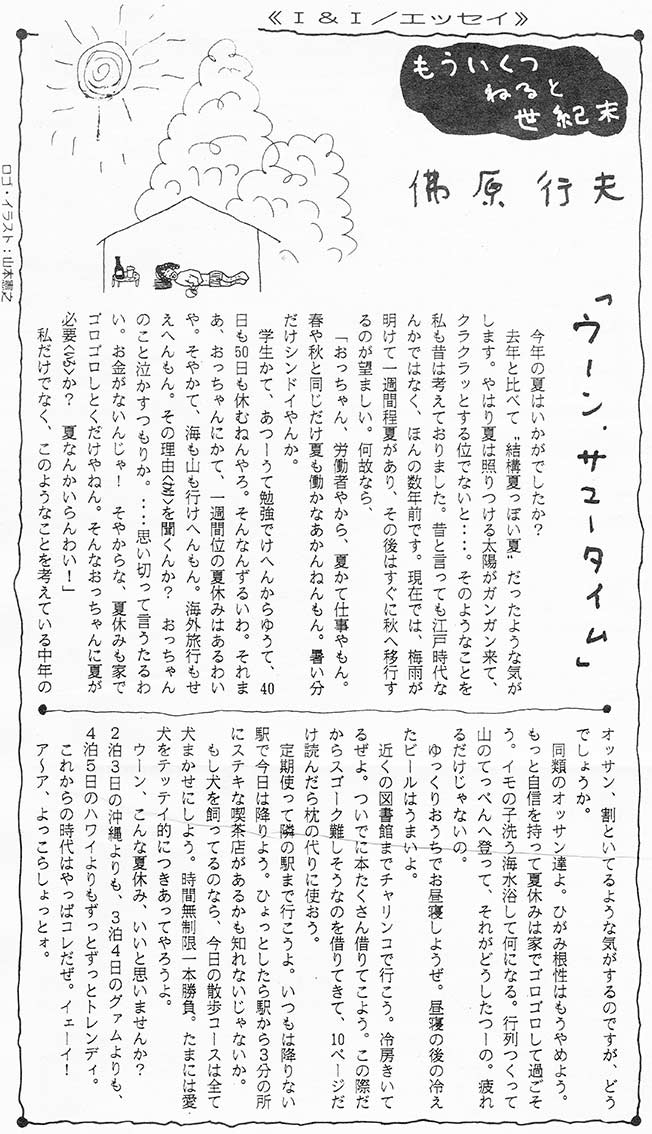 《Ｉ＆Ｉ／エッセイ》
もういくつ
ねると
世紀末
佛原行夫
ロゴ・イラスト：山本憲之
「ウーン，サマータイム」
今年の夏はいかがでしたか？
去年と比べて〝結構夏っぽい夏〟だったような気が
します。やはり夏は照りつける太陽がガンガン来て、
クラクラッとする位でないと・・・。そのようなことを
私も昔は考えておりました。昔と言っても江戸時代な
んかではなく、ほんの数年前です。現在では、梅雨が
明けて一週間程夏があり、その後はすぐに秋へ移行す
るのが望ましい。何故なら、
「おっちゃん、労働者やから、夏かて仕事やもん。
春や秋と同じだけ夏も働かなあかんねんもん。暑い分
だけシンドイやんか。
学生かて、あつーうて勉強でけへんからゆうて、40
日も50日も休むねんやろ。そんなんずるいわ。それま
あ、おっちゃんにかて、一週間位の夏休みはあるわい
や。そやかて、海も山も行けへんもん。海外旅行もせ
えへんもん。その理由を聞くんか？　おっちゃん
のこと泣かすつもりか。・・・思い切って言うたるわ
い。お金がないんじゃ！　そやからな、夏休みも家で
ゴロゴロしとくだけやねん。そんなおっちゃんに夏が
必要か？　夏なんかいらんわい！」
私だけでなく、このようなことを考えている中年の
オッサン、割といてるような気がするのですが、どう
でしょうか。
同類のオッサン達よ。ひがみ根性はもうやめよう。
もっと自信を持って夏休みは家でゴロゴロして過ごそ
う。イモの子洗う海水浴して何になる。行列つくって
山のてっぺんへ登って、それがどうしたつーの。疲れ
るだけじゃないの。
ゆっくりおうちでお昼寝しようぜ。昼寝の後の冷え
たビールはうまいよ。
近くの図書館までチャリンコで行こう。冷房きいて
るぜよ。ついでに本たくさん借りてこよう。この際だ
からスゴーク難しそうなのを借りてきて、10ページだ
け読んだら枕の代りに使おう。
定期使って隣の駅まで行こうよ。いつもは降りない
駅で今日は降りよう。ひょっとしたら駅から３分の所
にステキな喫茶店があるかも知れないじゃないか。
もし犬を飼ってるのなら、今日の散歩コースは全て
犬まかせにしよう。時間無制限一本勝負。たまには愛
犬をテッテイ的につきあってやろうよ。
ウーン、こんな夏休み、いいと思いませんか？
２泊３日の沖縄よりも、３泊４日のグァムよりも、
４泊５日のハワイよりもずっとずっとトレンディ。
これからの時代はやっぱコレだぜ。イェーイ！
ア〜ア、よっこらしょっとォ。